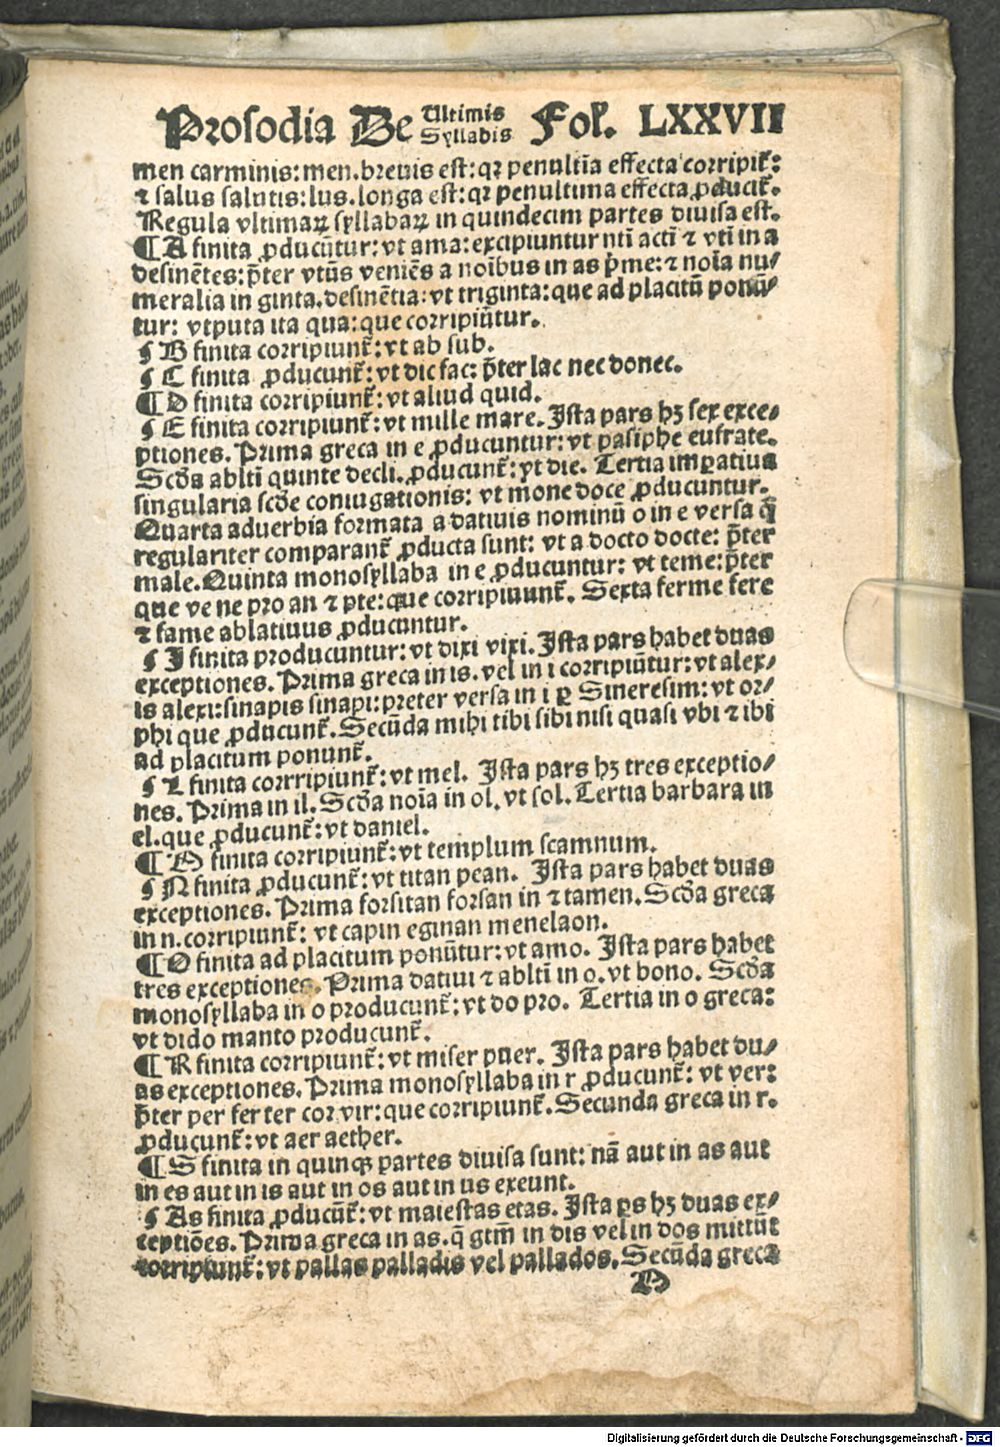 Prosodia De Ultimis Syllabis Fol. LXXVII
men carminis: men. breuis est: qꝛ penultīa effecta corripiť:
⁊ salus salutis: lus. longa est: qꝛ penultima effecta ꝓduciť.
Regula vltimaꝝ syllabaꝝ in quindecim partes diuisa est.
¶ A finita ꝓducūtur: vt ama: excipiuntur ntī actī ⁊ vtī in a
desinētes: p̄ter vtūs veniēs a noībus in as p̄me: ⁊ noīa nu⸗
meralia in ginta. desinētia: vt triginta: que ad placitū ponū⸗
tur: vtputa ita qua: que corripiūtur.
¶ B finita corripiunť: vt ab sub.
¶ C finita ꝓducunť: vt dic fac: p̄ter lac nec donec.
¶ D finita corripiunť: vt aliud quid.
¶ E finita corripiunť: vt mille mare. Ista pars hꝫ sex exce⸗
ptiones. Prima greca in e ꝓducuntur: vt pasiphe eufrate.
Scďa abltī quinte decli. ꝓducunť: vt die. Tertia imꝑatiua
singularia scďe coniugationis: vt mone doce ꝓducuntur.
Quarta aduerbia formata a datiuis nominū o in e versa q̄
regulariter comparanť ꝓducta sunt: vt a docto docte: p̄ter
male. Quinta monosyllaba in e ꝓducuntur: vt teme: p̄ter
que ve ne pro an ⁊ pte: que corripiuunť. Sexta ferme fere
⁊ fame ablatiuus ꝓducuntur.
¶ I finita producuntur: vt dixi vixi. Ista pars habet duas
exceptiones. Prima greca in is. vel in i corripiūtur: vt alex⸗
is alexi: sinapis sinapi: preter versa in i ꝑ Sineresim: vt or⸗
phi que ꝓducunť. Secūda mihi tibi sibi nisi quasi vbi ⁊ ibi
ad placitum ponunť.
¶ L finita corrripiunť: vt mel. Ista pars hꝫ tres exceptio⸗
nes. Prima in il. Scďa noīa in ol. vt sol. Tertia barbara in
el. que ꝓducunť: vt daniel.
¶ M finita corripiunť: vt templum scamnum.
¶ N finita ꝓducunť: vt titan pean. Ista pars habet duas
exceptiones. Prima forsitan forsan in ⁊ tamen. Scďa greca
in n. corripiunť: vt capin eginan menelaon.
¶ O finita ad placitum ponūtur: vt amo. Ista pars habet
tres exceptiones. Prima datiui ⁊ abltī in o. vt bono. Scďa
monosyllaba in o producunť: vt do pro. Tertia in o greca:
vt dido manto producunť.
¶ R finita corripiunť: vt miser puer. Ista pars habet du⸗
as exceptiones. Prima monosyllaba in r ꝓducunť: vt ver:
p̄ter per fer ter cor vir: que corripiunť. Secunda greca in r.
ꝓducunť: vt aer aether.
¶ S finita in quinqꝫ partes diuisa sunt: nā aut in as aut
in es aut in is aut in os aut in us exeunt.
¶ As finita ꝓducūť: vt maiestas etas. Ista ꝑs hꝫ duas ex⸗
ceptiōes. Prima greca in as. q̄ gtm̄ in dis vel in dos mittūt
corripiunť: vt pallas palladis vel pallados. Secūda greca
Digitalisierung gefördert durch die Deutsche Forschungsgemeinschaft - DFG